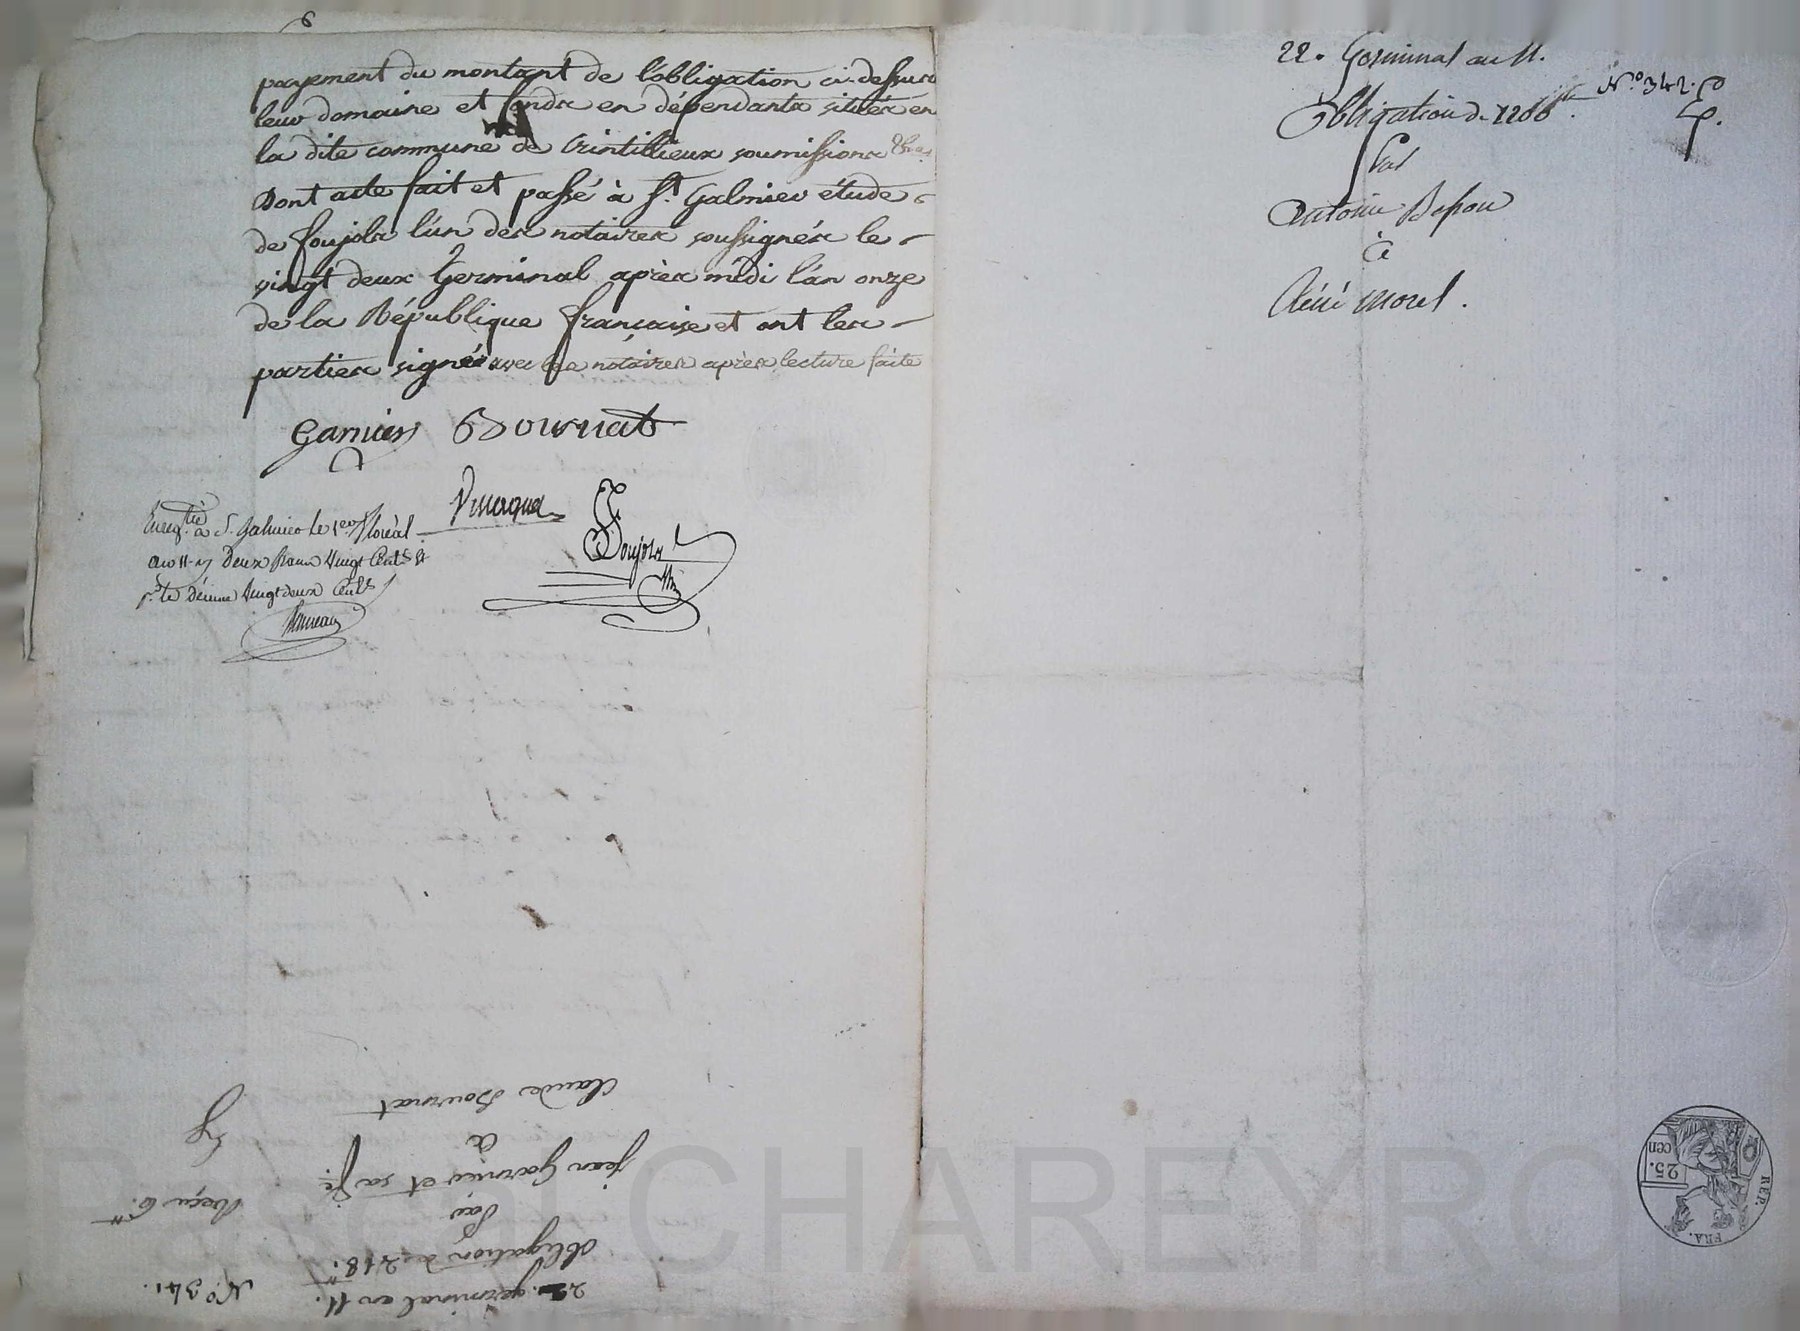 payement du montant de l'obligation ci-dessus
leur domaine et fonds en dépendants situés en
la dite commune de Crintillieux soumissions
Dont acte fait et passé à St. Galmier étude
de Foujols l'un des notaires soussignés le
vingt deux Germinal après midi l'an onze
de la République française et ont les
parties signé avec les notaires après lecture faite
Garnier Bournat
Foujols
Enregtré à St. Galmier le 1er floréal
an 11 Deux francs Vingt Cent.s
Décime Vingt deux Cent.s
Claude Bournat
à
jean Garnier et sa fe.
Par
obligation de 218.tt
22. germinal an 11.
Reçu 6.tt
N.o 341.
22. Germinal an 11.
N.o 342.
Obligation de 1200tt.
Par
Antoine Besson
à
Réné Morel.
REP. FRA.
25.
cen
CHAREYRO